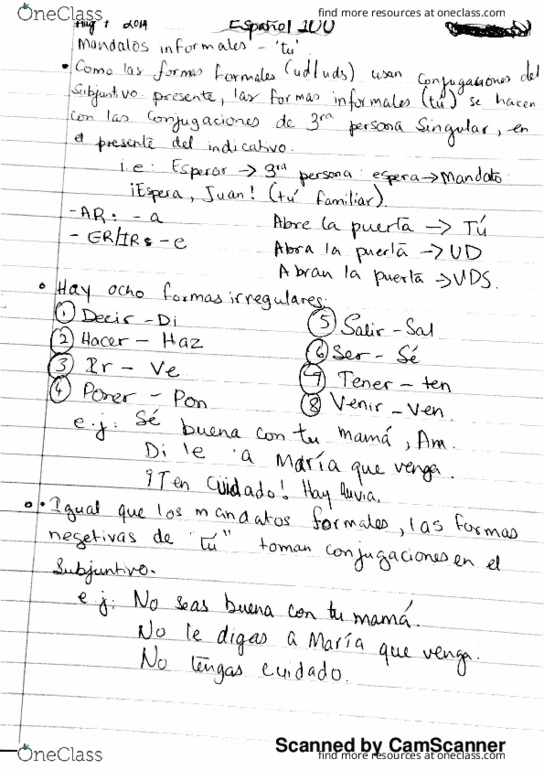 OneClass
find more resources at oneclass.com
Aug 1 2019 Español 100
Mandatos informales - 'tú'
• Como las formas formales (ud/uds) usan conjugaciones del
subjuntivo presente, las formas informales (tú) se hacen
con las conjugaciones de 3ra persona singular, en
el presente del indicativo.
i.e: Esperar → 3rd persona: espera → Mandato:
¡Espera, Juan! (tú familiar)
-AR: - a Abre la puerta → Tú
- ER/IR: - e Abra la puerta → UD
Abran la puerta → UDS.
• Hay ocho formas irregulares:
① Decir - Di ⑤ Salir - Sal
② Hacer - Haz ⑥ Ser - Sé
③ Ir - Ve ⑦ Tener - ten
④ Poner - Pon ⑧ Venir - Ven.
e.j: Sé buena con tu mamá, Am.
Di le a María que venga.
¡Ten cuidado! Hay lluvia.
• Igual que los mandatos formales, las formas
negetivas de "tú" toman conjugaciones en el
subjuntivo.
e j: No seas buena con tu mamá.
No le digas a María que venga.
No tengas cuidado.
Scanned by CamScanner
OneClass
find more resources at oneclass.com